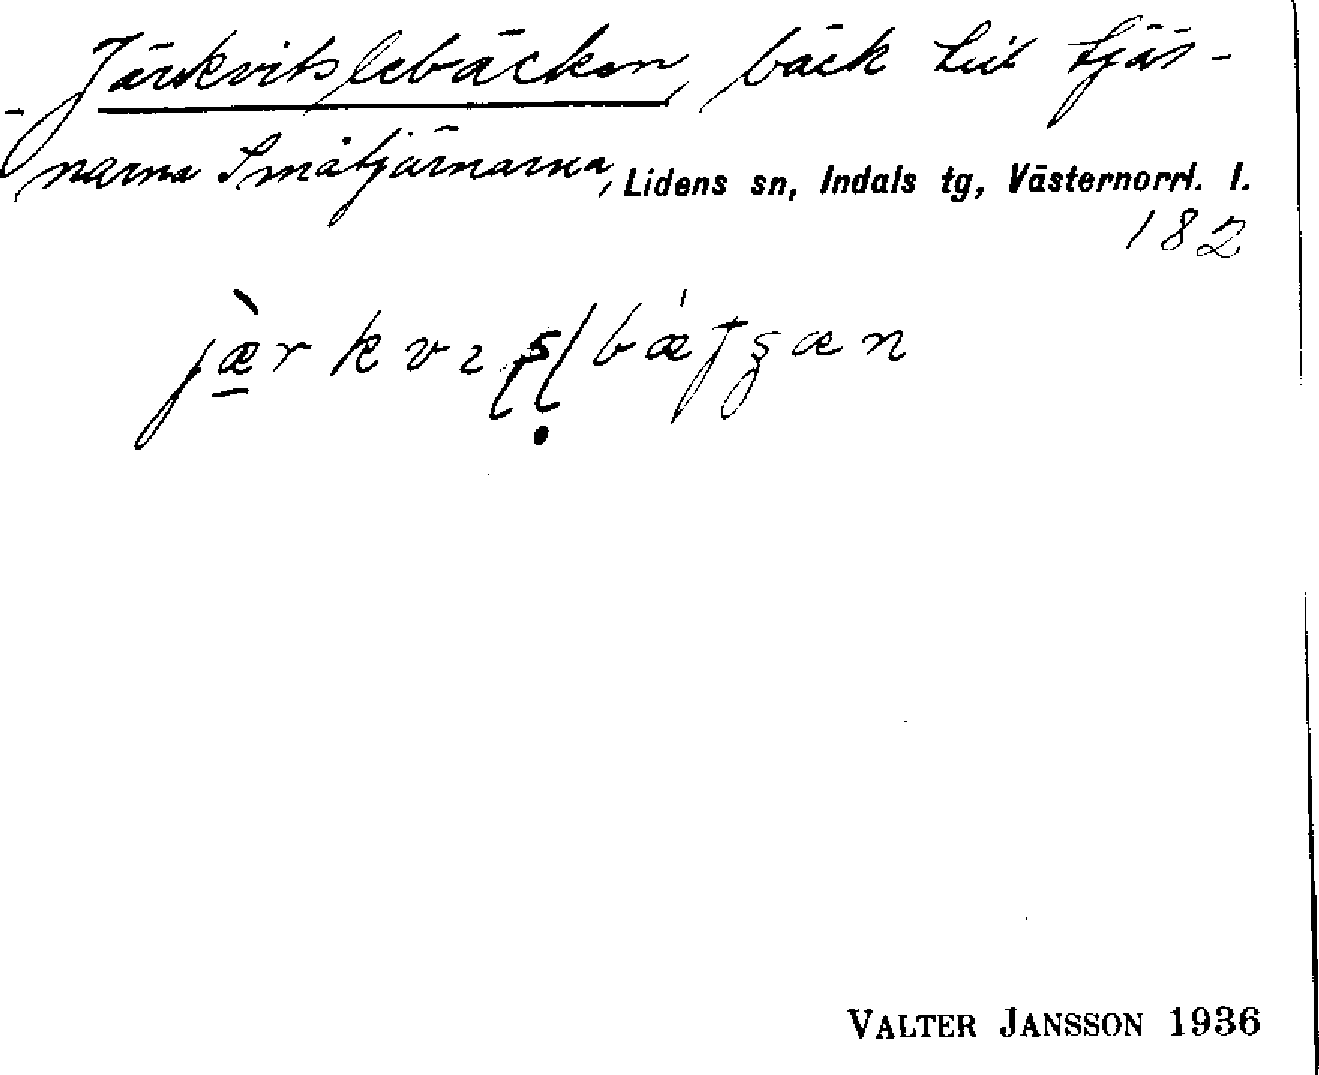 Järkvitslebäcken, bäck till tjär-
narna Småtjärnarna, Lidens sn, Indals tg, Västernorrl. l.
182
VALTER JANSSON 1936